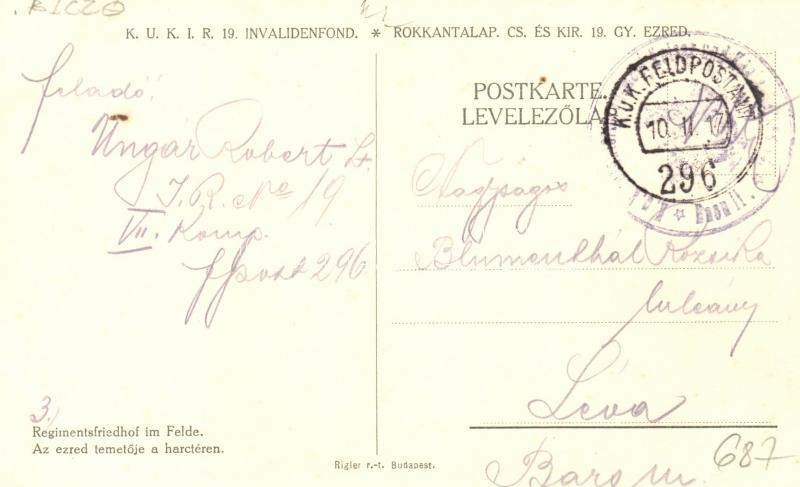 BICZO
K. U. K. I. R. 19. INVALIDENFOND. * ROKKANTALAP. CS. ÉS KIR. 19. GY. EZRED.
feladó:
Ungár Robert Lt.
I. R. No 19
VII. Komp.
fpost 296.
3.)
Regimentsfriedhof im Felde.
Az ezred temetője a harctéren.
Rigler r.-t. Budapest.
POSTKARTE.
LEVELEZŐLA
K.u.K. FELDPOSTAMT
10. II. 17
296
Nagyságos
Blumenthál Rozsika
Léva
Bars m.
687